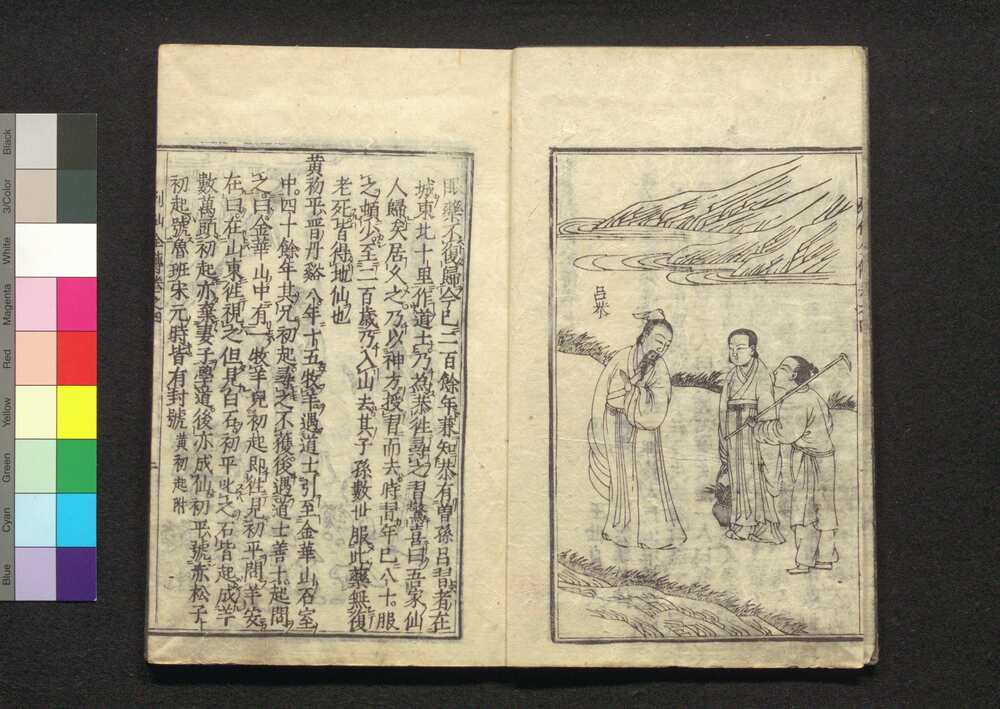 吕恭
用藥不復歸今已二百餘年不知恭有曾孫吕習者在
城東北十里作道士乃為恭往尋之習驚喜曰吾家仙
人歸矣居久之乃以神方授習而去時習年已八十服
之頓少至二百歲乃入山去其子孫數世服此藥無復
老死皆得地仙也
黄初平晋丹谿人年十五牧羊遇道士引至金華山石室
中四十餘年其兄初起尋之不獲後遇道士善卜起問
之曰金華山中有一牧羊兒初起即往見初平問羊安
在曰在山東往視之但見白石初平叱之石皆起成羊
數萬頭初起亦棄妻子學道後亦成仙初平號赤松子
初起號魯班宋元時皆有封號 黄初起附
列仙全傳卷之四
Black
3/Color
White
Magenta
Red
Yellow
Green
Cyan
Blue